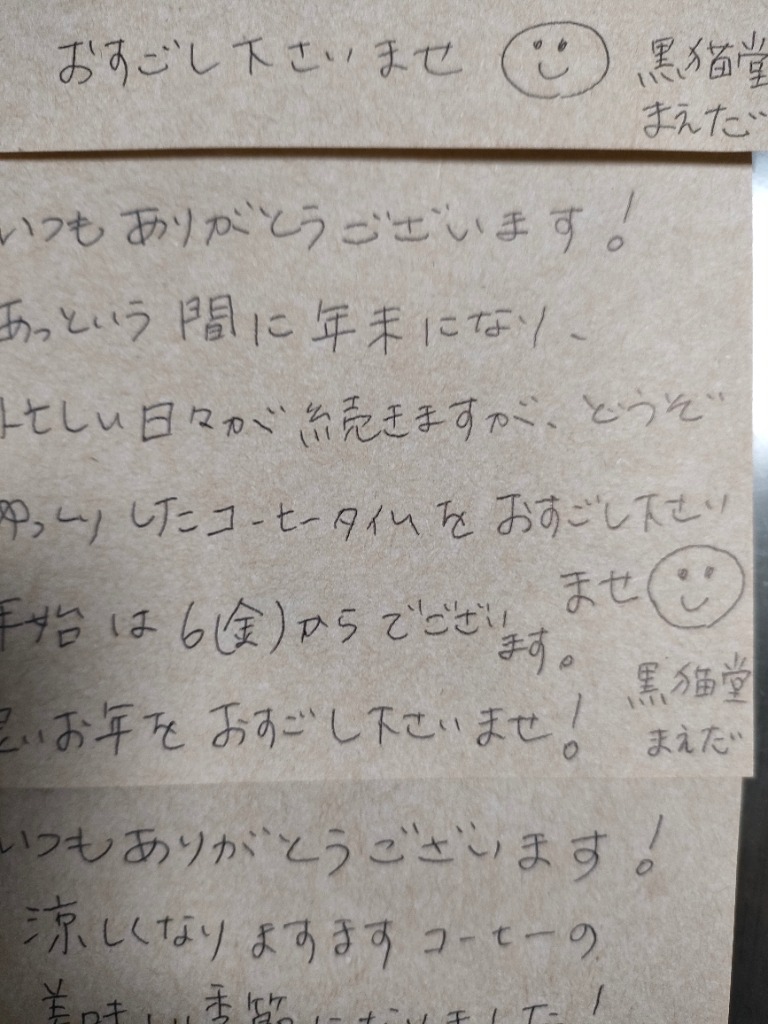 おすごし下さいませ
黒猫堂
まえだ
いつもありがとうございます!
あっという間に年末になり、
忙しい日々が続きますが、どうぞ
ゆっくりしたコーヒータイムをおすごし下さい
ませ
年始は6(金)からでござい
ます。
良いお年をおすごし下さいませ!
黒猫堂
まえだ
いつもありがとうございます!
涼しくなりますますコーヒーの
美味しい季節になりました!